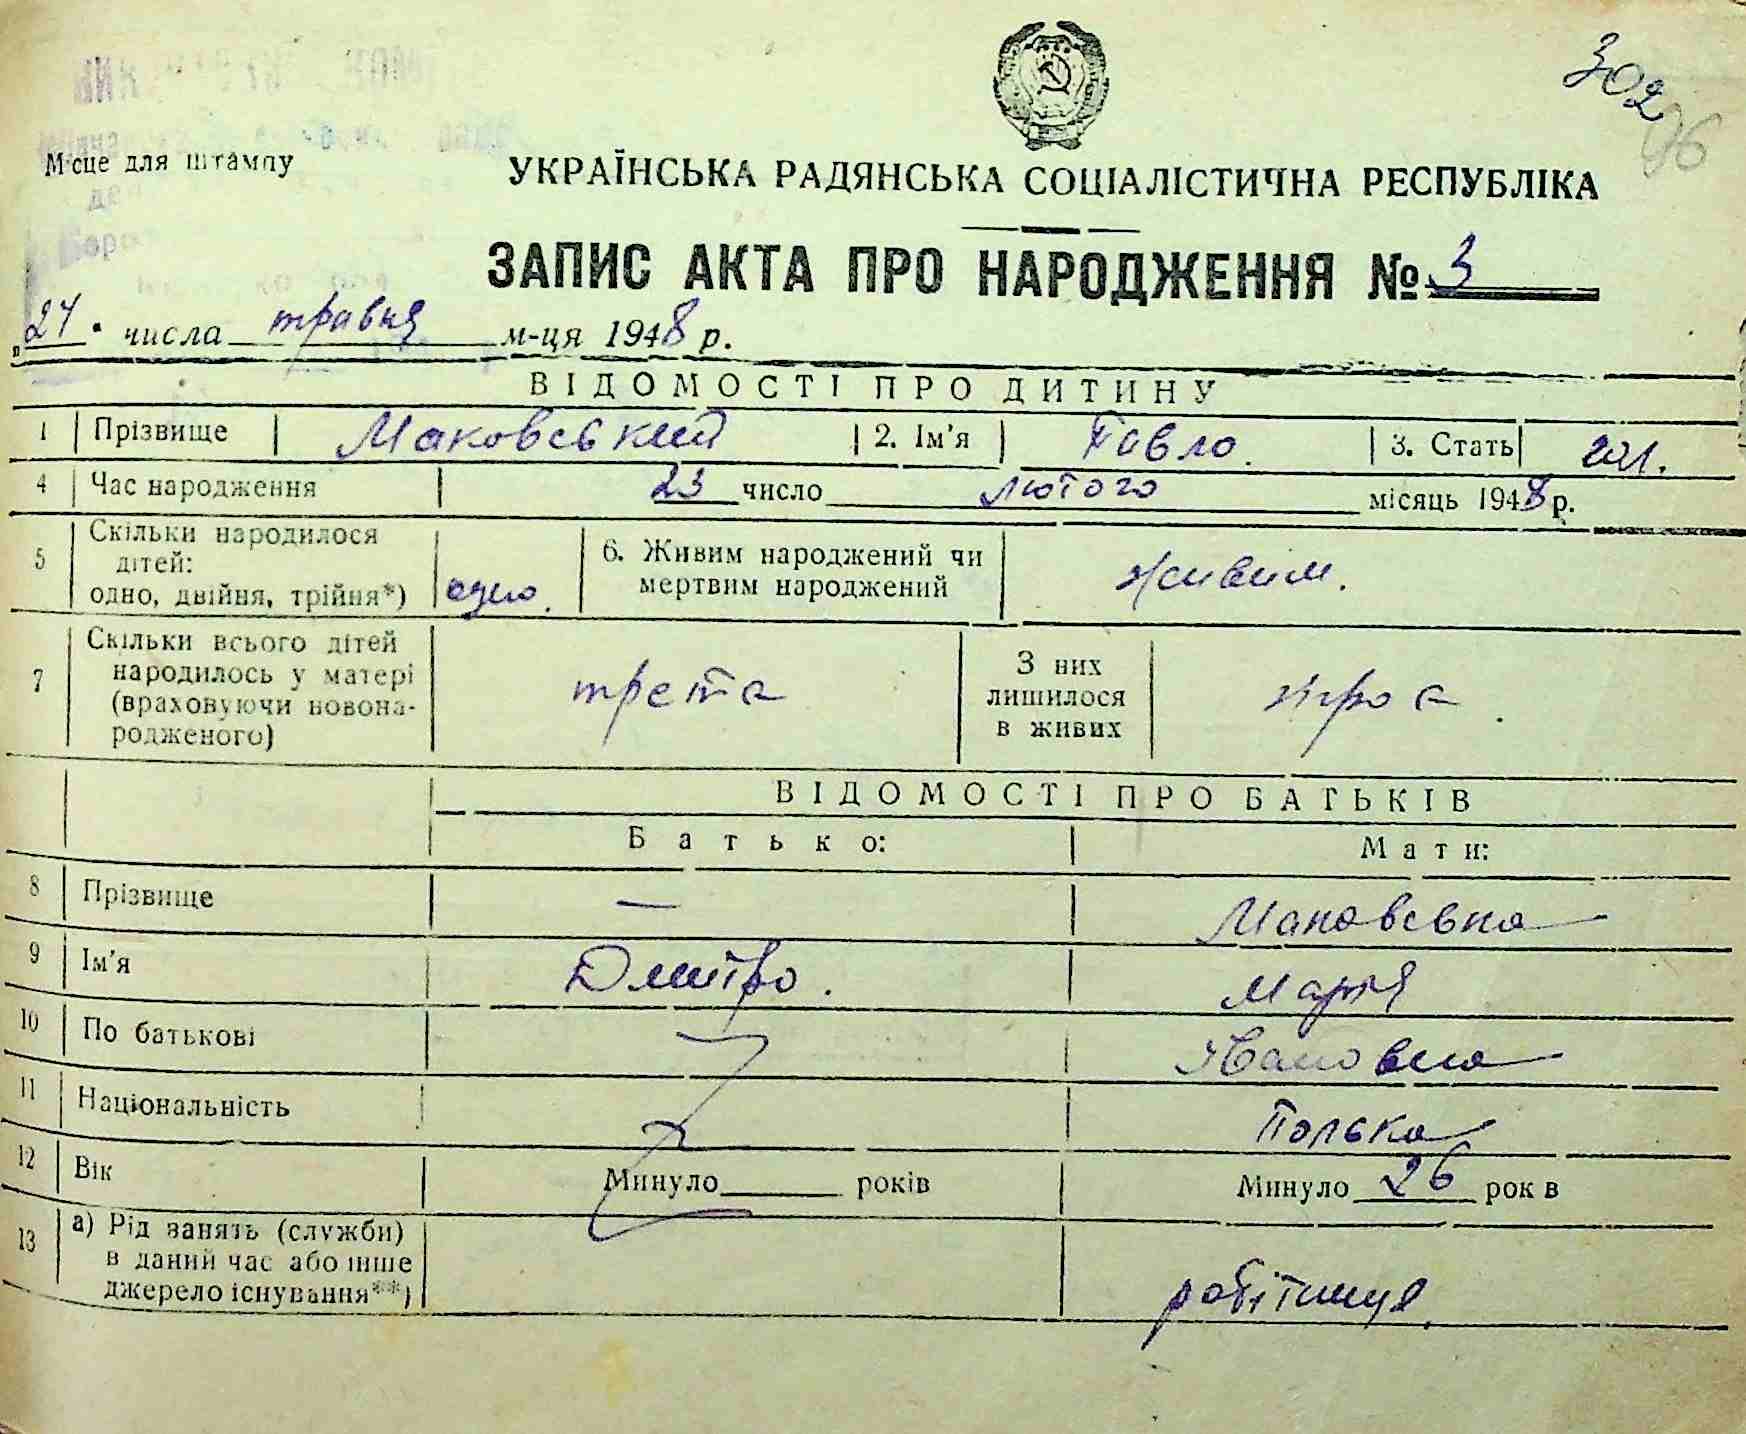 302
96
Місце для штампу
УКРАЇНСЬКА РАДЯНСЬКА СОЦІАЛІСТИЧНА РЕСПУБЛІКА
ЗАПИС АКТА ПРО НАРОДЖЕННЯ № 3
„24" числа травня м-ця 1948 р.
ВІДОМОСТІ ПРО ДИТИНУ
1 Прізвище Маковський 2. Ім'я Павло. 3. Стать чол.
4 Час народження 23 число лютого місяць 1948 р.
5 Скільки народилося дітей: одно, двійня, трійня*) одно. 6. Живим народжений чи мертвим народжений живим.
7 Скільки всього дітей народилось у матері (враховуючи новонародженого) трета З них лишилося в живих троє.
ВІДОМОСТІ ПРО БАТЬКІВ
Батько: Мати:
8 Прізвище — Маковська
9 Ім'я Дмитро. Марія
10 По батькові Івановна
11 Національність Полька
12 Вік Минуло років Минуло 26 років
13 а) Рід занять (служби) в даний час або інше джерело існування**) робітниця